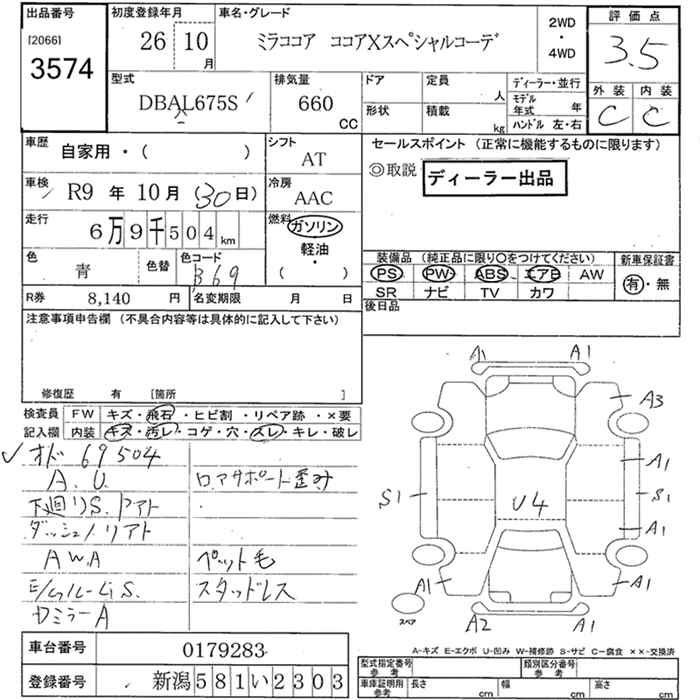 出品番号
[2066]
3574
初度登録年月
26 10 月
車名・グレード
ミラココア ココアXスペシャルコーデ
2WD
・
4WD
評価点
3.5
外装 内装
C C
型式
DBAL675S
排気量
660 CC
ドア
形状
定員 人
積載 kg
ディーラー・並行
モデル年式 年
ハンドル 左・右
車歴
自家用・( )
シフト
AT
セールスポイント (正常に機能するものに限ります)
◎取説 ディーラー出品
車検
R9 年 10 月 (30日)
冷房
AAC
走行
6万9千504 km
燃料
ガソリン
軽油・
( )
色
青
色替
色コード
B69
装備品 (純正品に限り○をつけてください)
PS PW ABS エアB AW
SR ナビ TV カワ
新車保証書
有・無
R券 8,140 円
名変期限 月 日
後日品
注意事項申告欄 (不具合内容等は具体的に記入して下さい)
修復歴 有 [箇所 ]
検査員記入欄
FW キズ・飛石・ヒビ割・リペア跡・×要
内装 キズ・汚レ・コゲ・穴・スレ・キレ・破レ
✓オド 69504
A.U.
ロアサポート歪み
下廻りS.
ダッシュ
AWA
ペット毛
スタッドレス
ミラーA
A1 A1
A3
A1
S1 S1
U4
A1
A1 A1
A2 A1
スペア
A-キズ E-エクボ U-凹み W-補修跡 S-サビ C-腐食 ××-交換済
車台番号 0179283
登録番号 新潟581い2303
型式指定番号 参考
類別区分番号 参考
車庫証明用 参考
長さ cm 幅 cm 高さ cm